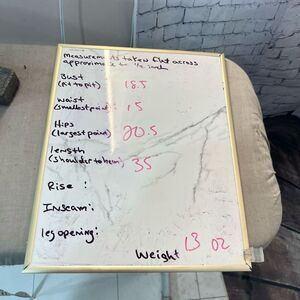 Measurements taken flat across
approximate to 1/2 inch
Bust
(Pit to pit) 18.5
waist
(smallest point) 15
Hips
(largest point) 20.5
length
(shoulder to hem) 35
Rise :
Inseam:
leg opening:
Weight 13 oz